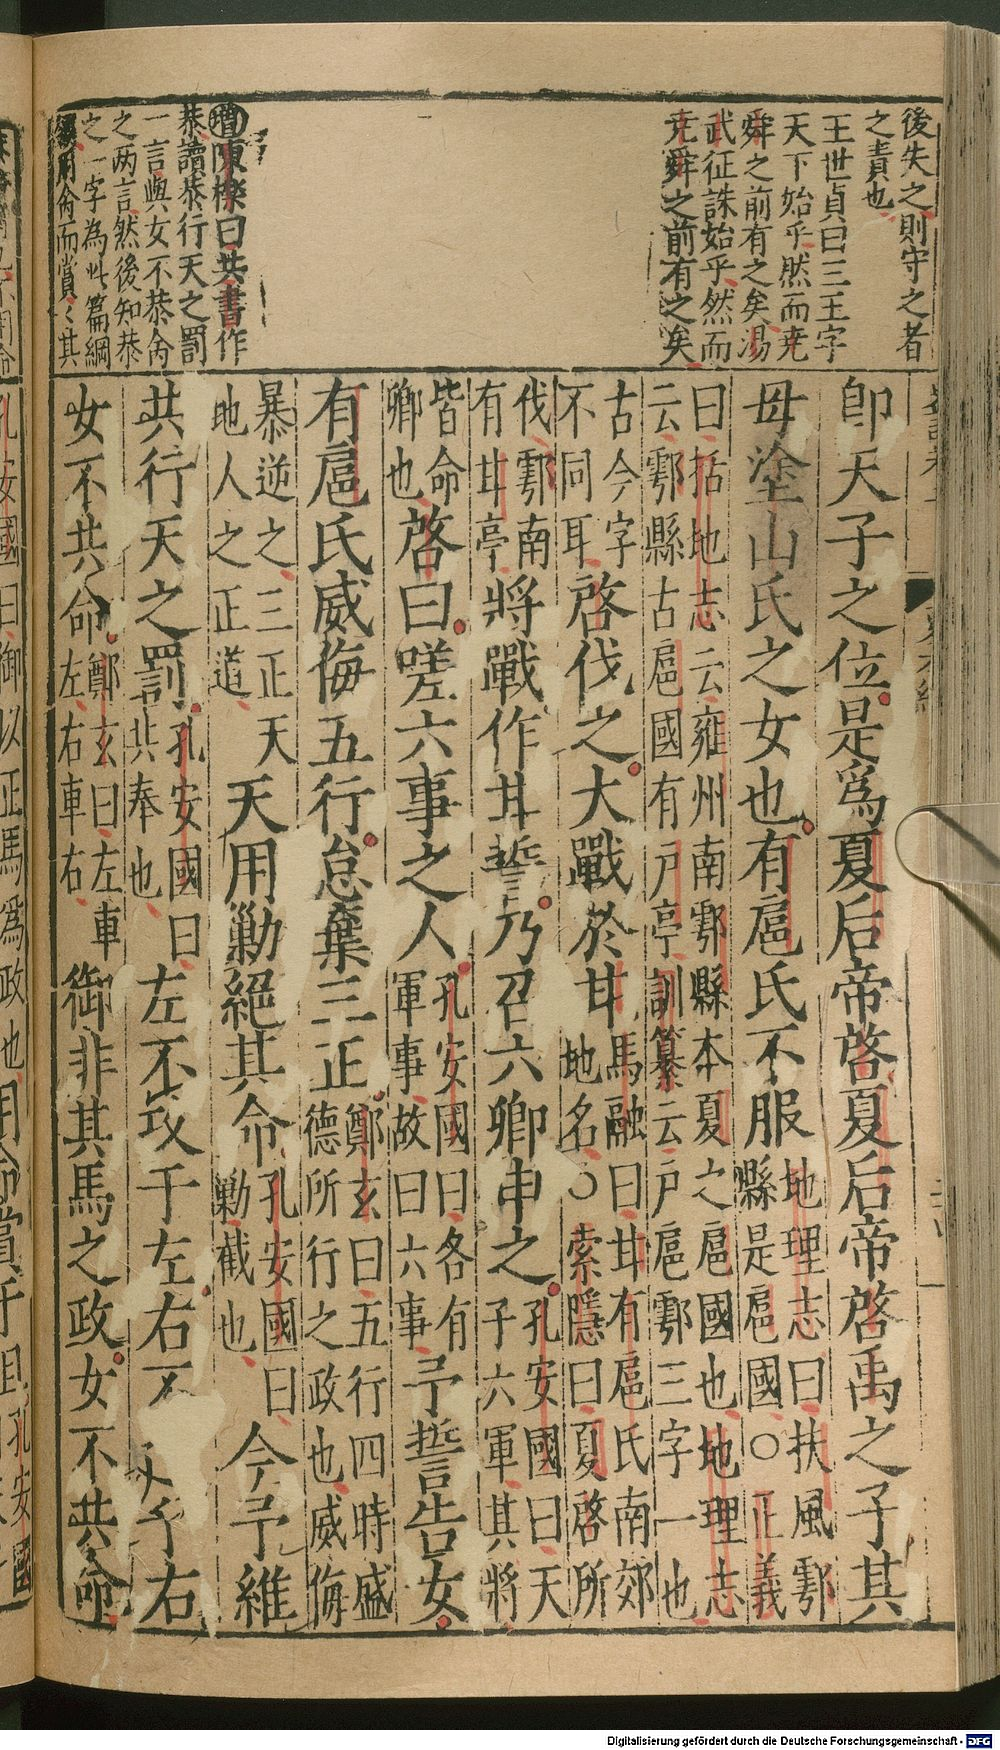 後失之則守之者
之責也
王世貞曰三王字
天下始乎然而堯
舜之前有之矣湯
武征誅始乎然而
堯舜之前有之矣
增陳櫟曰共書作
恭讀恭行天之罰
一言與女不恭命
之两言然後知恭
之一字為此篇綱
用命而賞〻其
卽天子之位是爲夏后帝啓夏后帝啓禹之子其
母塗山氏之女也有扈氏不服地理志曰扶風鄠
縣是扈國○正義
曰括地志云雍州南鄠縣本夏之扈國也地理志
云鄠縣古扈國有户亭訓纂云户扈鄠三字一也
古今字
不同耳啓伐之大戰於甘馬融曰甘有扈氏南郊
地名○索隱曰夏啓所
伐鄠南
有甘亭將戰作甘誓乃召六卿申之孔安國曰天
子六軍其將
皆命
卿也啓曰嗟六事之人孔安國曰各有
軍事故曰六事予誓告女
有扈氏威侮五行怠棄三正鄭玄曰五行四時盛
德所行之政也威侮
暴逆之三正天
地人之正道天用勦絕其命孔安國曰
勦截也今予維
共行天之罰孔安國曰
共奉也左不攻于左右不
于右
女不共命鄭玄曰左車
左右車右御非其馬之政女不共命
孔安國曰御以正馬爲政也用命賞于祖孔安國
Digitalisierung gefördert durch die Deutsche Forschungsgemeinschaft - DFG